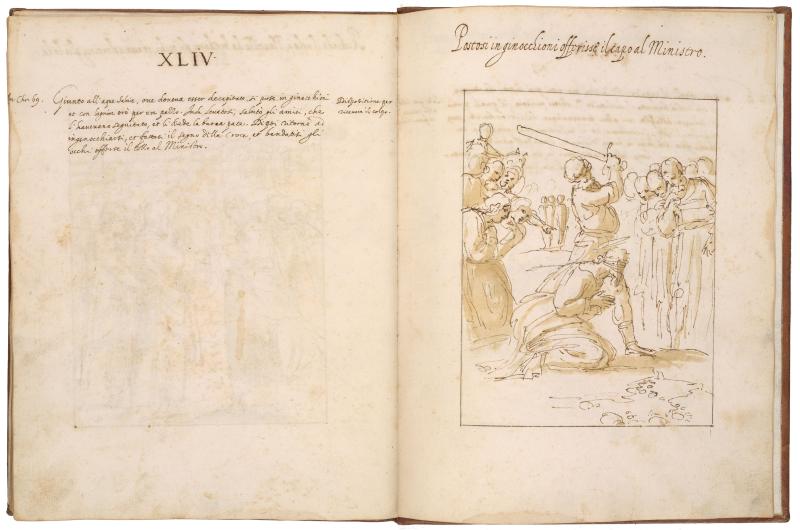 XLIV.
Giunto all'aque Salvie, ove doveva esser decapitato, si pose in ginochioni
et con lagrime orò per un pezzo. Indi levatosi, salutò gli amici, che
l'havevano seguitato, et li diede la buona pace. Di poi ritornò ad
inginochiarsi, et fattosi il segno della Croce et bendatisi gli
occhi offerse il collo al Ministro.
Dispositione per
ricevere il colpo.
Postosi in ginocchioni offerisse il capo al Ministro.